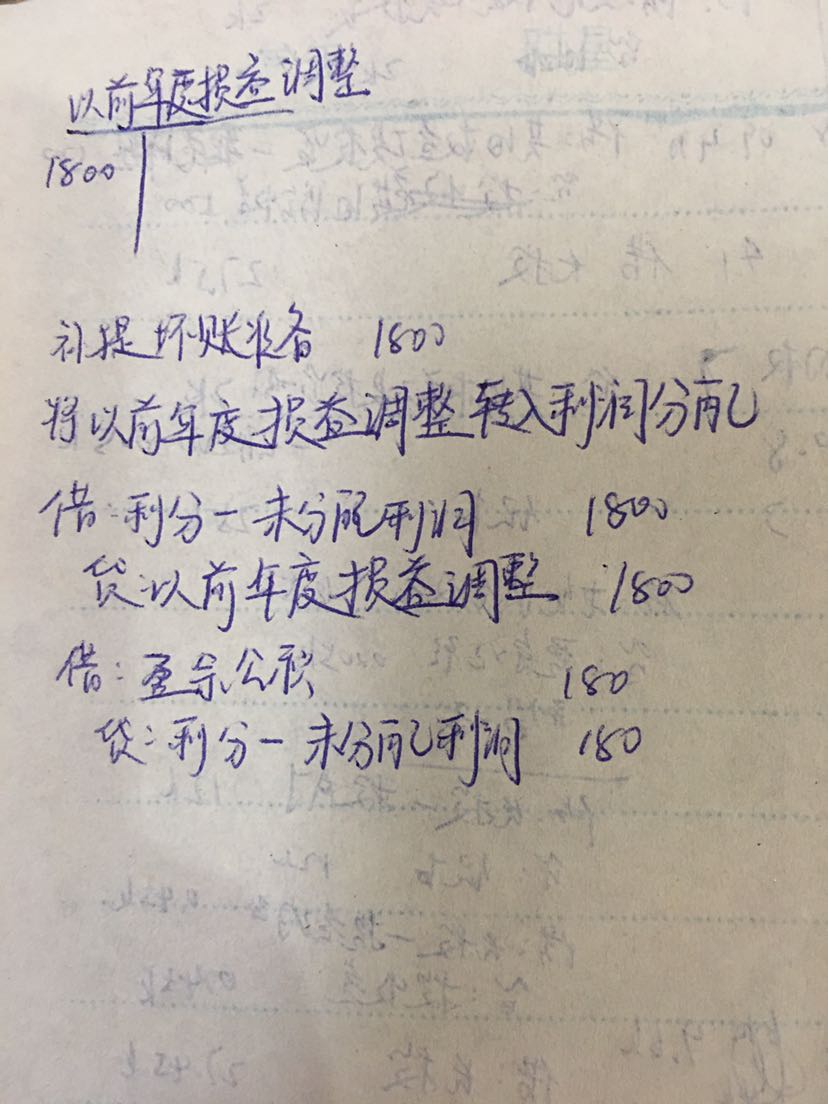 以前年度损益调整
1800
补提坏账准备 1800
将以前年度损益调整转入利润分配
借:利分一未分配利润 1800
贷:以前年度损益调整 1800
借:盈余公积 180
贷:利分一未分配利润 180